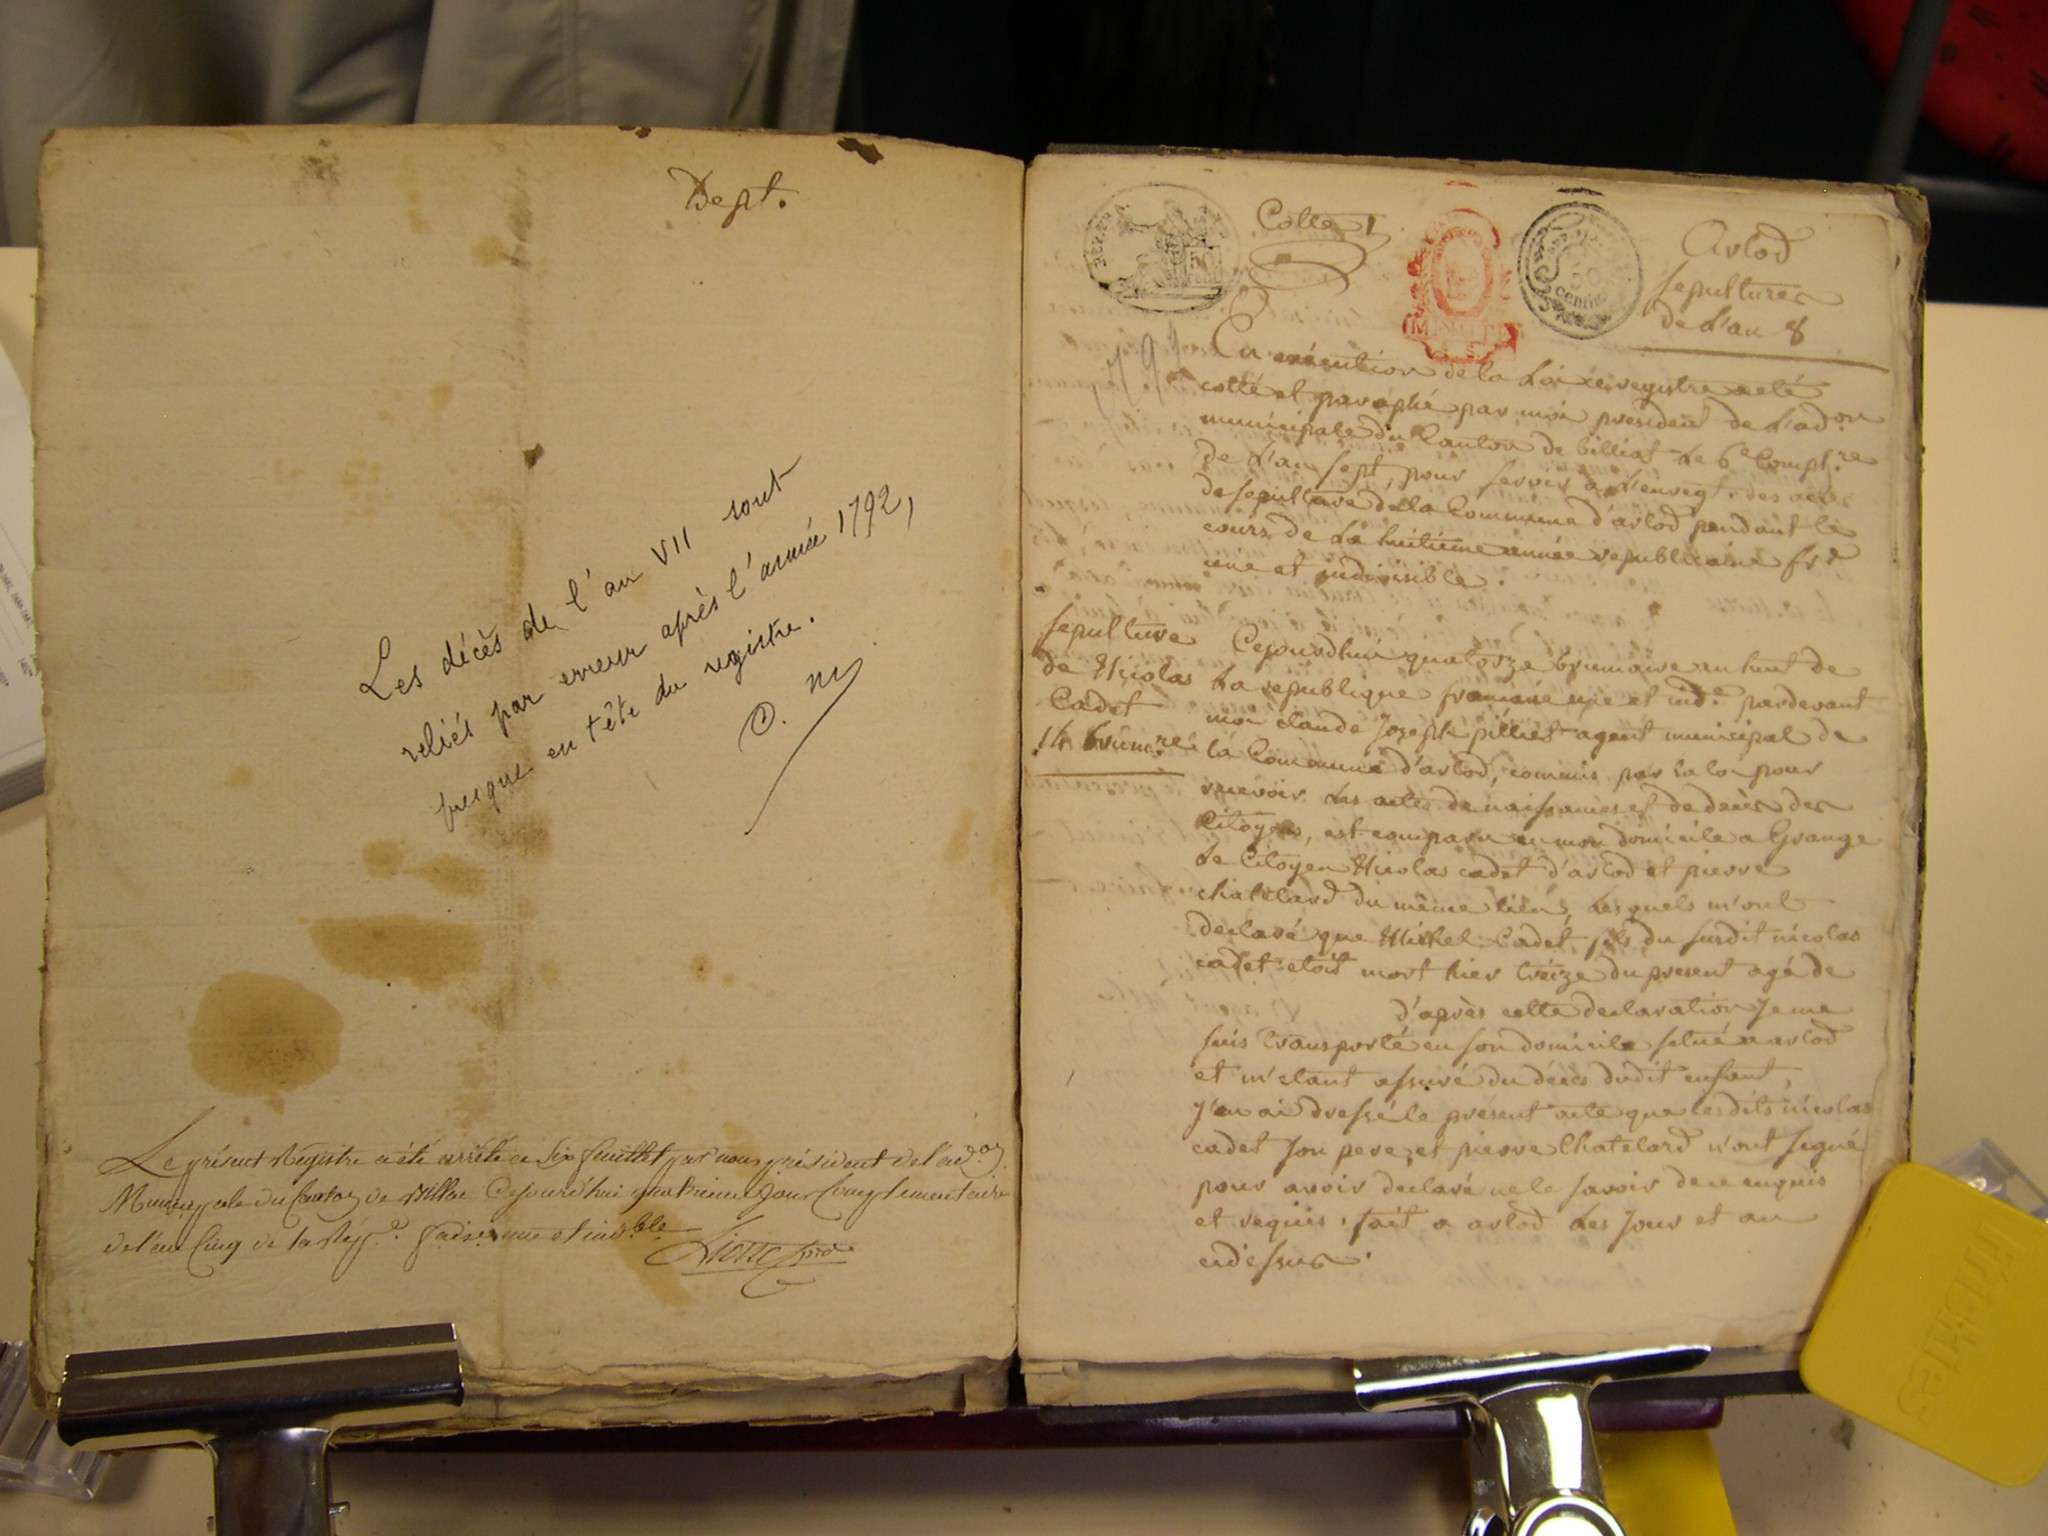 Dept.
Les décès de l'an VII sont
reliés par erreur après l'année 1792,
presque en tête du registre.
C. M
Le présent Registre a été arrêté a six feuillet par nous président de l'ad.on
Municipale du Canton de Billiat Cejourd'hui quatrieme Jour Complementaire
de l'an Cinq de la Rép.e française une et indi.ble
Cotte 1
50
centimes
Arlod
sepultures
de L'an 8
En exécution de la Loi ce registre a eté
cotté et paraphé par moi president de L'ad.on
municipale du Canton de billiat Le 6e Compl.re
de L'an sept, pour servir a L'enregt. des actes
de sepulture de la Commune d'arlod pendant le
cours de La huitieme année republicaine fre
une et indivisible.
sepulture
de Nicolas
Cadet
14 brum.re
Cejourdhui quatorze brumaire an huit de
La republique francaise une et ind.e pardevant
moi claude Joseph pilliet agent municipal de
la Commune d'arlod, commis par la loi pour
recevoir les actes de naissances et de décès des
Citoyens, est comparu en mon domicile a Grange
Le Citoyen Nicolas cadet d'arlod et pierre
chatelard du même lieu, Lesquels m'ont
declaré que Michel Cadet fils du susdit nicolas
cadet etoit mort hier treize du present agé de
d'après cette declaration Je me
suis transporté en son domicile situé a arlod
et m'etant assuré du décès dudit enfant,
J'en ai dressé le présent acte que lesdits nicolas
cadet son pere, et pierre Chatelard n'ont signé
pour avoir declaré ne le savoir de ce enquis
et requis, fait a arlod Les Jour et an
cidessus.